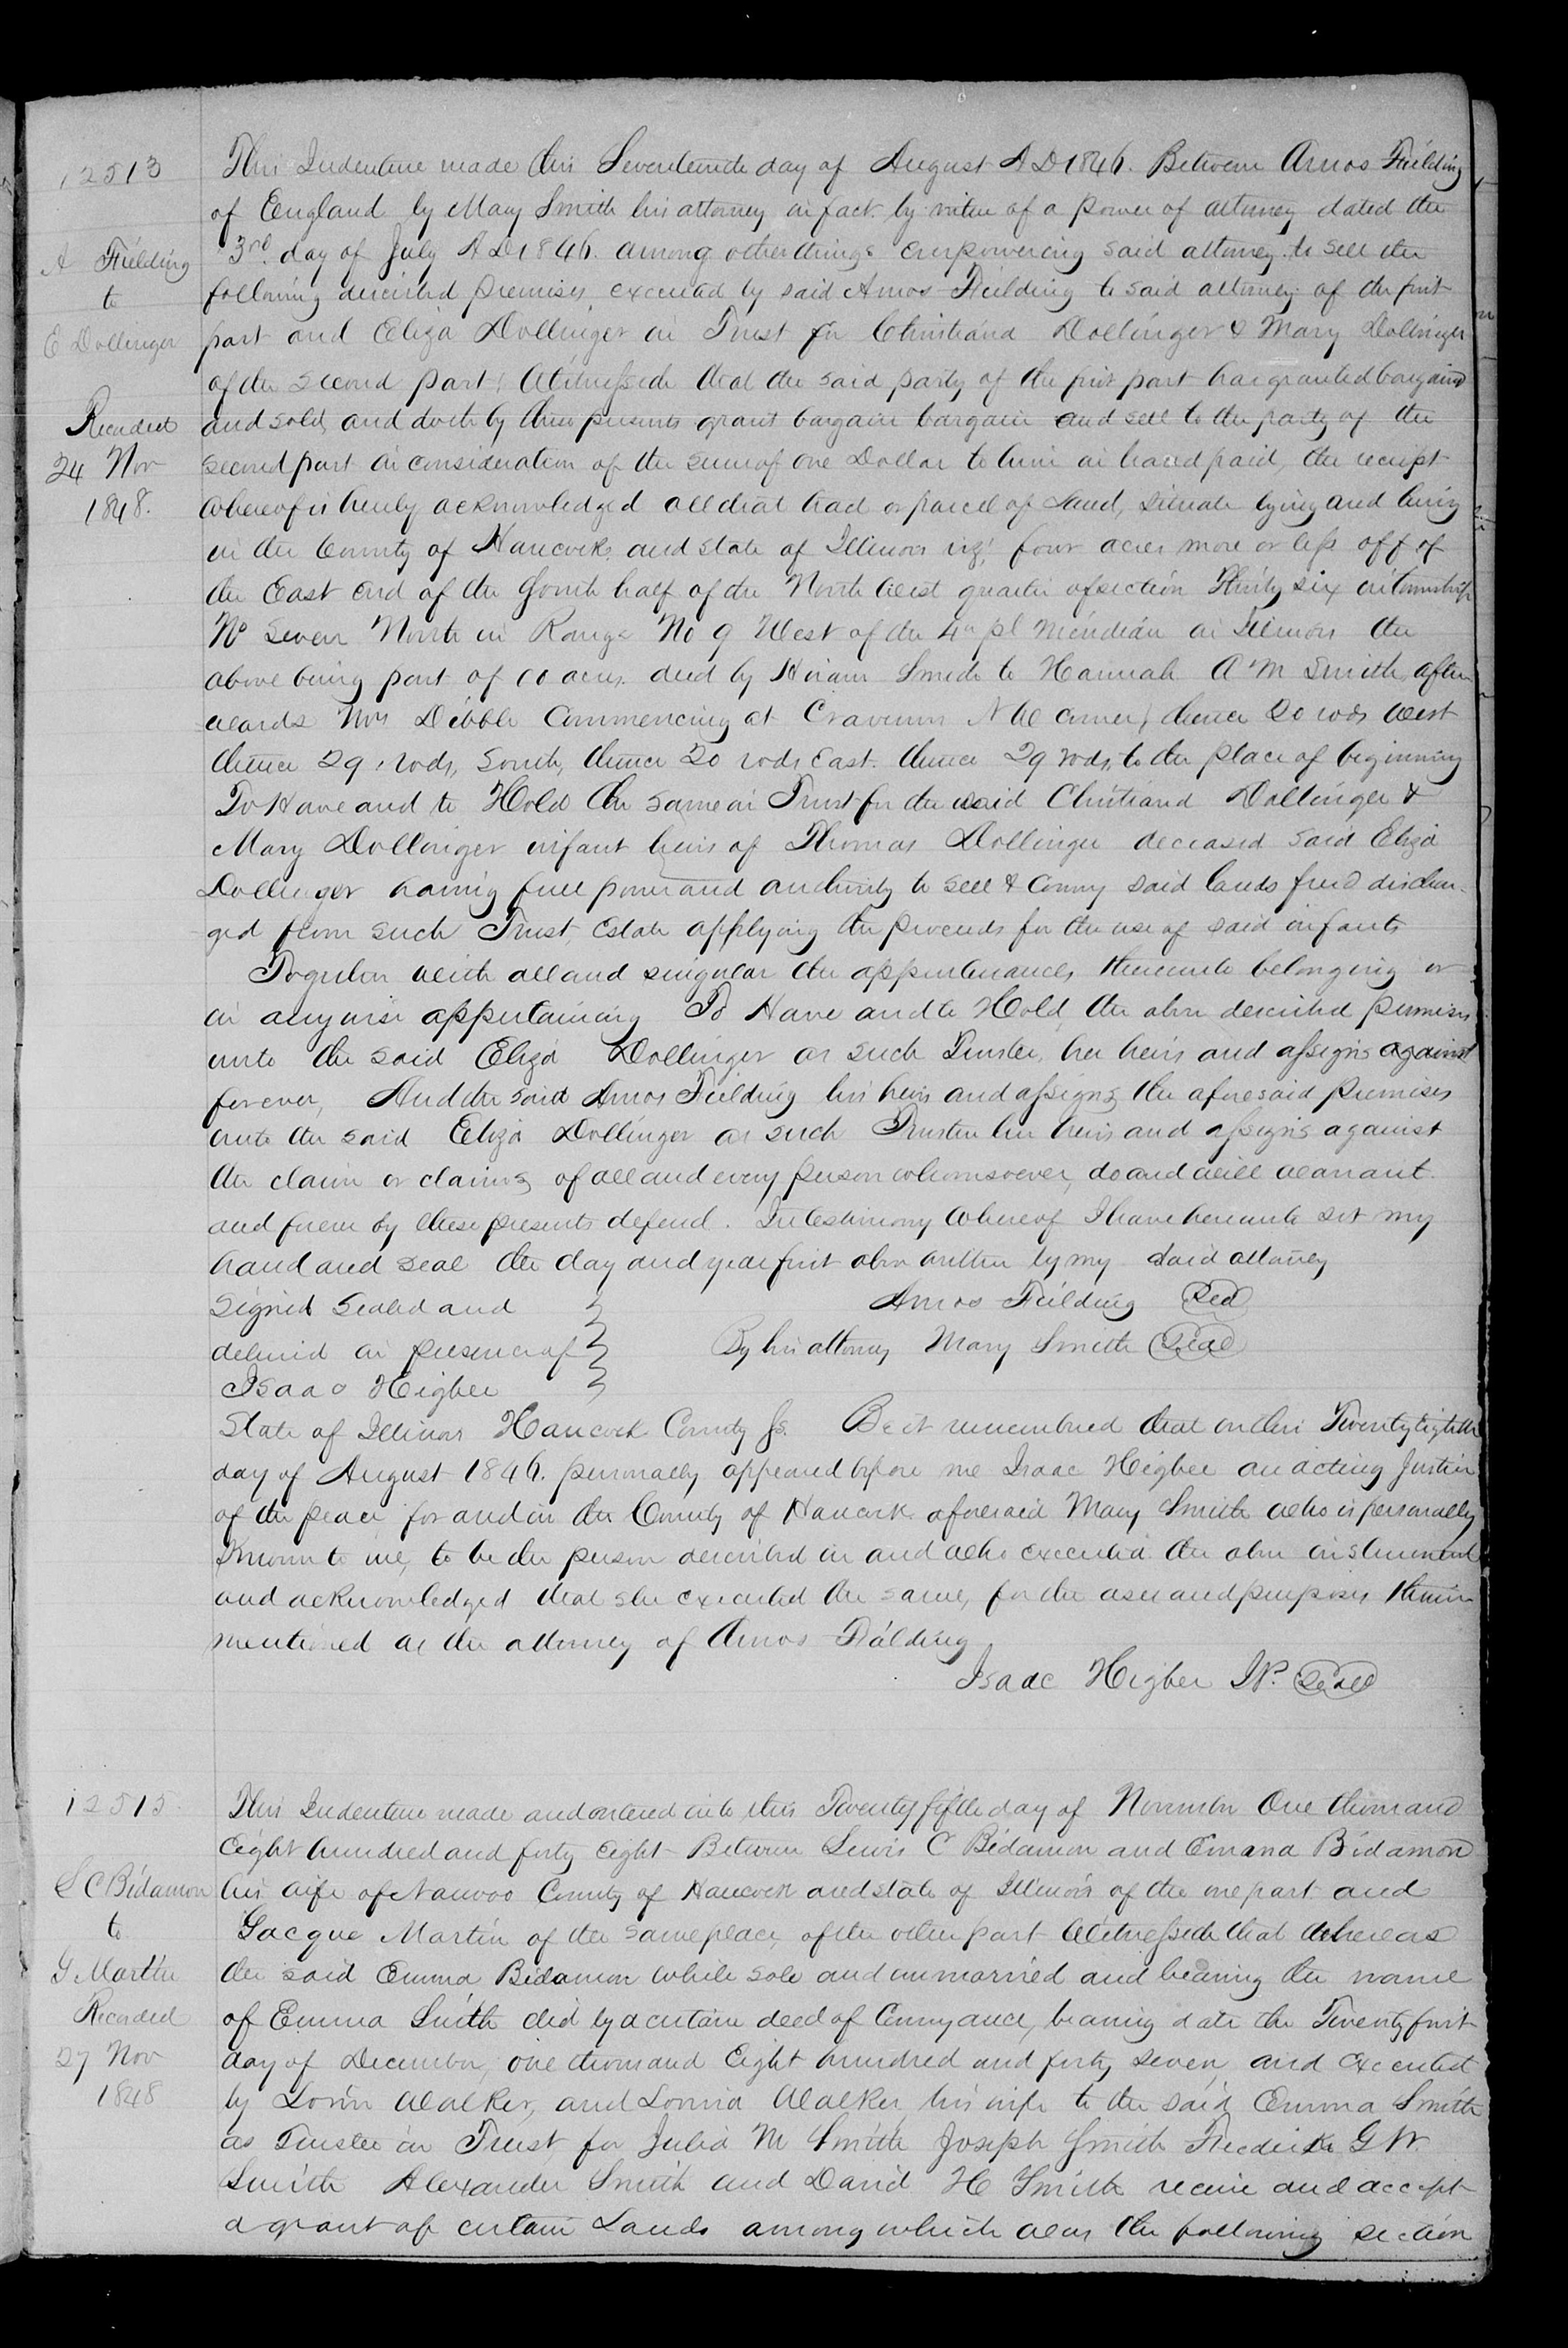 12513
A Fielding
to
E Dollinger
Recorded
24 Nov
1848.
This Indenture made this Seventeenth day of August A D 1846. Between Amos Fielding
of England by Mary Smith his attorney in fact by virtue of a power of attorney dated the
3rd day of July A D 1846. among other things empowering said attorney to sell the
following described premises executed by said Amos Fielding to said attorney of the first
part and Eliza Dollinger in Trust for Christiana Dollinger & Mary Dollinger
of the second part; Witnesseth that the said party of the first part has granted bargained
and sold, and doth by these presents grant bargain bargain and sell to the party of the
second part in consideration of the sum of one Dollar to him in hand paid, the receipt
whereof is hereby acknowledged all that tract or parcel of Land, situate lying and being
in the County of Hancock, and state of Illinois viz; four acres more or less off of
the East end of the South half of the North West quarter of section Thirty six in township
No Seven North in Range No 9 West of the 4th pl Meridian in Illinois the
above being part of acres deed by Hiram Smith to Hannah A M Smith, after
wards Mrs Dibble Commencing at N W corner, thence 20 rods West
thence 29 rods, South, thence 20 rods East. thence 29 rods, to the place of beginning
To Have and to Hold the same in Trust for the said Christiana Dollinger &
Mary Dollinger infant heirs of Thomas Dollinger deceased said Eliza
Dollinger having full power and authority to sell & convey said lands freed dischar-
ged from such Trust, Estate applying the proceeds for the use of said infants
Together with all and singular the appurtenances thereunto belonging or
in anywise appertaining To Have and to Hold, the above described premises
unto the said Eliza Dollinger as such Trustee, her heirs and assigns against
forever, And the said Amos Fielding his heirs and assigns the aforesaid premises
unto the said Eliza Dollinger as such Trustee her heirs and assigns against
the claim or claims, of all and every person whomsoever, do and will warrant
and forever by these presents defend. In testimony whereof I have hereunto set my
hand and seal the day and year first above written by my said attorney
Signed Sealed and Amos Fielding Seal
delivered in presence of By his attorney Mary Smith Seal
Isaac Higbee
State of Illinois Hancock County ss. Be it remembered that on this Twenty Eighth
day of August 1846. personally appeared before me Isaac Higbee an acting Justice
of the peace for and in the County of Hancock aforesaid Mary Smith who is personally
known to me, to be the person described in and who executed the above instrument
and acknowledged that she executed the same, for the uses and purposes therein
mentioned as the attorney of Amos Fielding
Isaac Higbee J P. Seal
12515
L C Bidamon
to
G Martin
Recorded
27 Nov
1848
This Indenture made and entered into this Twenty fifth day of November One thousand
Eight hundred and forty eight Between Lewis C Bidamon and Emma Bidamon
his wife of Nauvoo County of Hancock and state of Illinois of the one part and
Gacque Martin of the same place, of the other part Witnesseth that whereas
the said Emma Bidamon while sole and unmarried and bearing the name
of Emma Smith did by a certain deed of Conveyance, bearing date the Twenty first
day of December, one thousand Eight hundred and forty seven, and executed
by Lorin Walker, and Lovina Walker, his wife to the said Emma Smith
as Trustee in Trust, for Julia M Smith Joseph Smith Frederick G W.
Smith Alexander Smith and David H Smith receive and accept
a grant of certain Lands among which was the following section